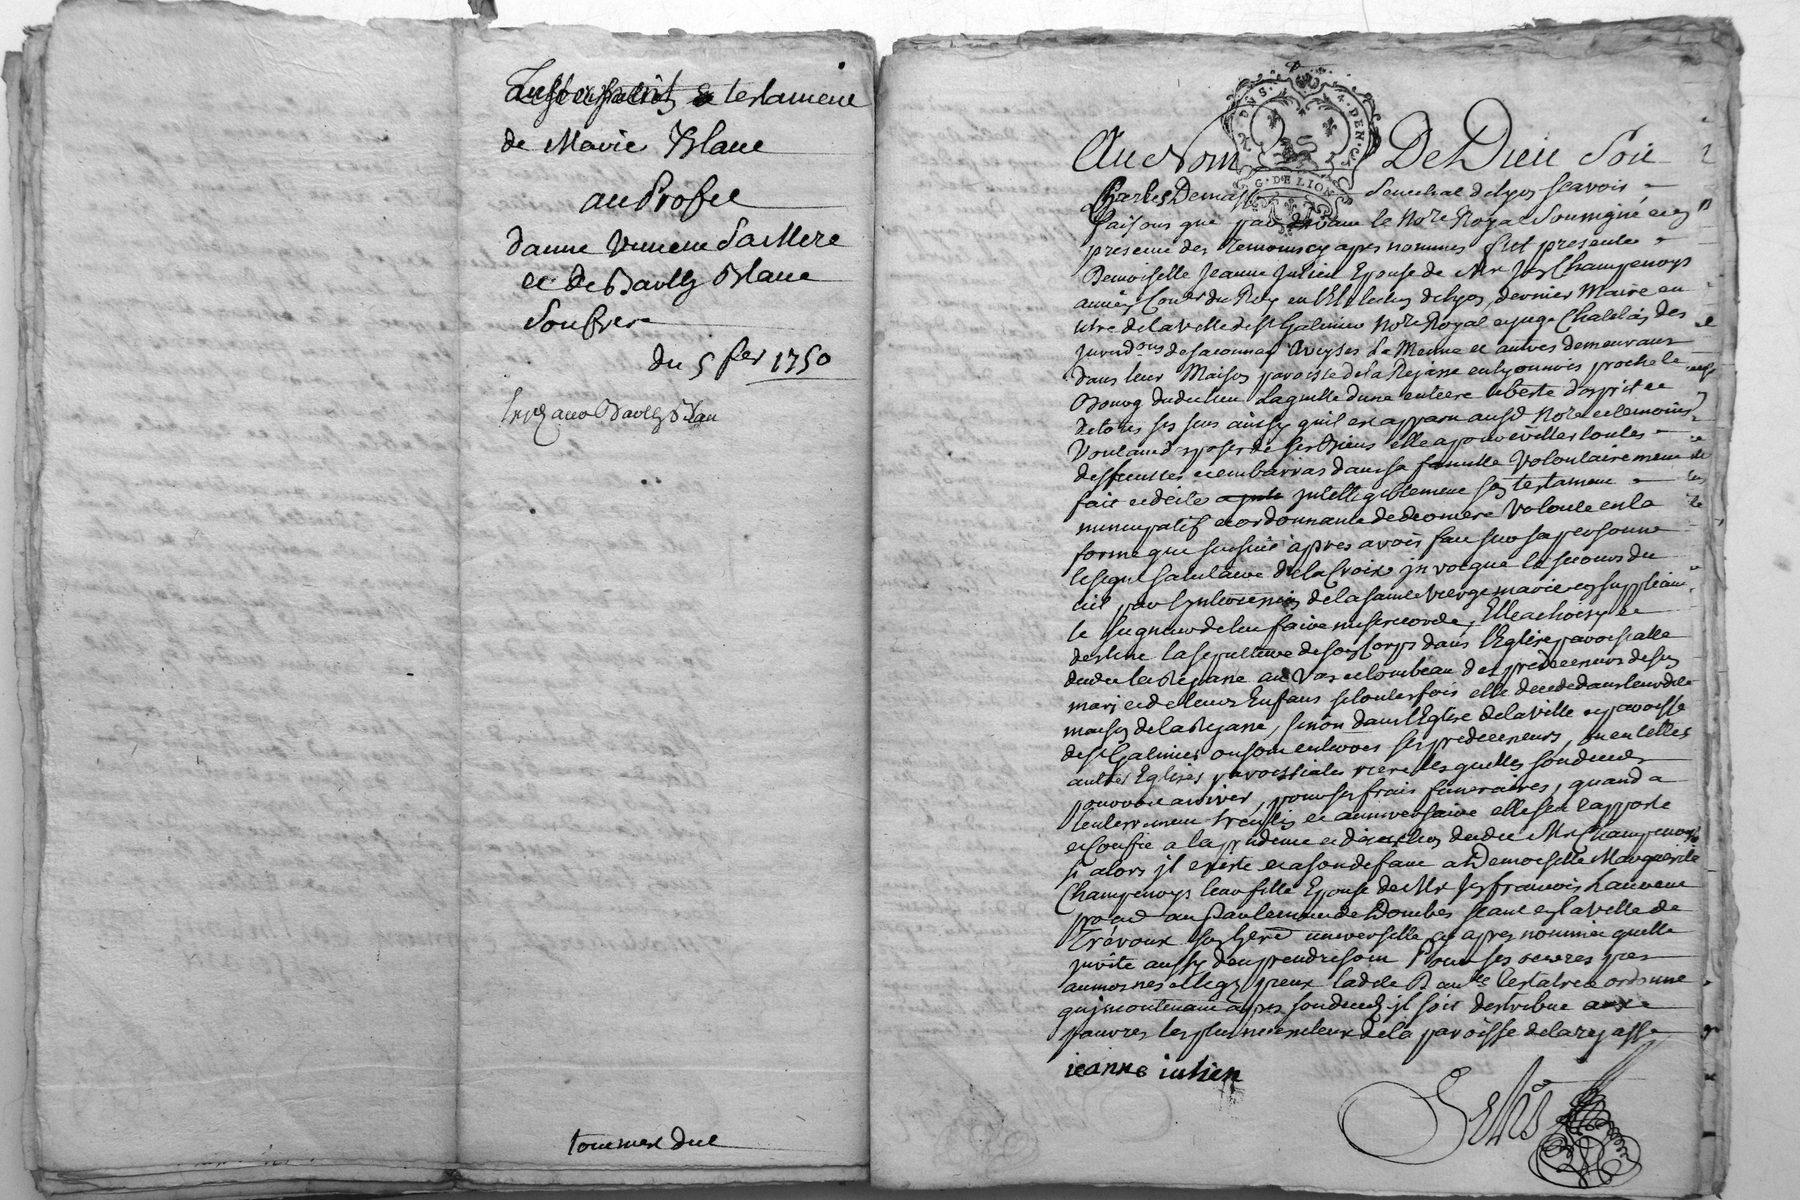 testament
de Marie Blanc
au Profit
danne Vincent Sa Mere
et de Bartlly Blanc
Son frere
du 5 fer 1750
tournes due
Au Nom De Dieu Soit
G. DE LION
Charles Demasso Senechal de lyon scavoir
faisons que par devant le Nore Royal Soussigné et en
presence des Temoins cy apres nommes fut presente
Demoiselle Jeanne Julien Epouse de Mr Champenoys
ancien Coner du Roy en l'Election de lyon, dernier Maire en
titre de la ville de St Galmier Nore Royal et juge Chatelain des
jurisdons de et autres demeurant
dans leur Maison paroisse de la Rejasse en lyonnois proche le
Bourg dudit lieu Laquelle dune entiere liberte d'esprit et
de tous ses sens ainsy quil est apparu audt Nore et temoins
Voulant disposer de ses Biens elle a pour eviter toutes
difficultes et embarras dans sa famille Volontairement
fait et dicte intelligiblement son testament
nuncupatif et ordonnance de derniere Volonte en la
forme que sensuit apres avoir fait sur sa personne
le signe salutaire de la Croix invoqué le secours du
ciel par lintercession de la sainte Vierge marie en suppliant
le seigneur de luy faire misericorde, Elle a choisy et
destine la sepulture de son Corps dans l'Eglise paroissialle
dudit la Rejasse au Vas et tombeau des predecesseurs de son
mari et de leurs Enfans si toutesfois elle decede dans leurdite
maison de la Rejasse, sinon dans l'Eglise de la Ville et paroisse
de St Galmier ou sont enterres ses predecesseurs, ou en telles
autres Eglises paroissiales riere lesquelles son deces
pourroit arriver, pour ses frais funeraires, quand a
lenterrement et anniversaire elle sen rapporte
et confie a la prudence et direction dudit Mr Champenoys
si alors il existe et a son defaut a Demoiselle Marguerite
Champenoys leur fille Epouse de Mr francois
au Parlement de Dombes seant en la Ville de
Trévoux son here universelle cy apres nommée quelle
jnvite aussy den prendre soin Pour ses oeuvres pies
aumosnes et legs pieux ladte testatrice ordonne
quincontinant apres son deces il soit destribue aux
pauvres les plus necessiteux de la paroisse de la rejasse
ieanne iulien